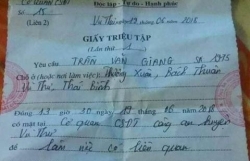 Cơ quan CSĐT Độc lập - Tự do - Hạnh phúc
Số 15
(Liên 2) Vũ Thư, ngày 19 tháng 06 năm 2018
GIẤY TRIỆU TẬP
(Lần thứ 1)
Yêu cầu TRẦN VĂN GIANG SN 1975
Chỗ ở (hoặc nơi làm việc): Hồng Xuân, Bách Thuận
Vũ Thư, Thái Bình
Đúng 13 giờ 30 ngày 19 tháng 06 năm 2018
có mặt tại Cơ quan CSĐT công an huyện
Vũ Thư
để làm việc có liên quan